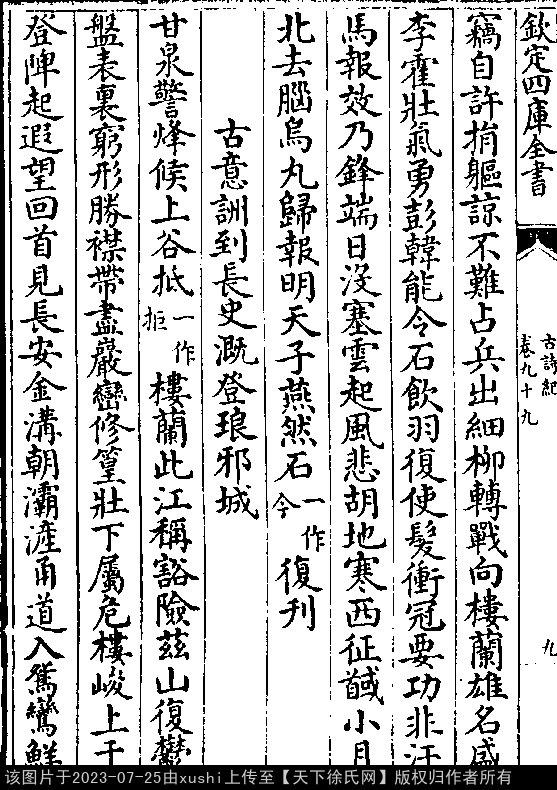 欽定四庫全書
古詩紀
卷九十九
九
竊自許捐軀諒不難占兵出細柳轉戰向樓蘭雄名盛
李霍壯氣勇彭韓能令石飲羽復使髮衝冠要功非汗
馬報效乃鋒端日沒塞雲起風悲胡地寒西征馘小月
北去腦烏丸歸報明天子燕然石一作今復刊
古意詶到長史溉登琅邪城
甘泉警烽候上谷抵一作拒樓蘭此江稱豁險茲山復鬱
盤表裏窮形勝襟帶盡巖巒修篁壯下屬危樓峻上干
登陴起遐望回首見長安金溝朝灞滻甬道入鴛鸞鮮
该图片于2023-07-25由xushi上传至【天下徐氏网】版权归作者所有